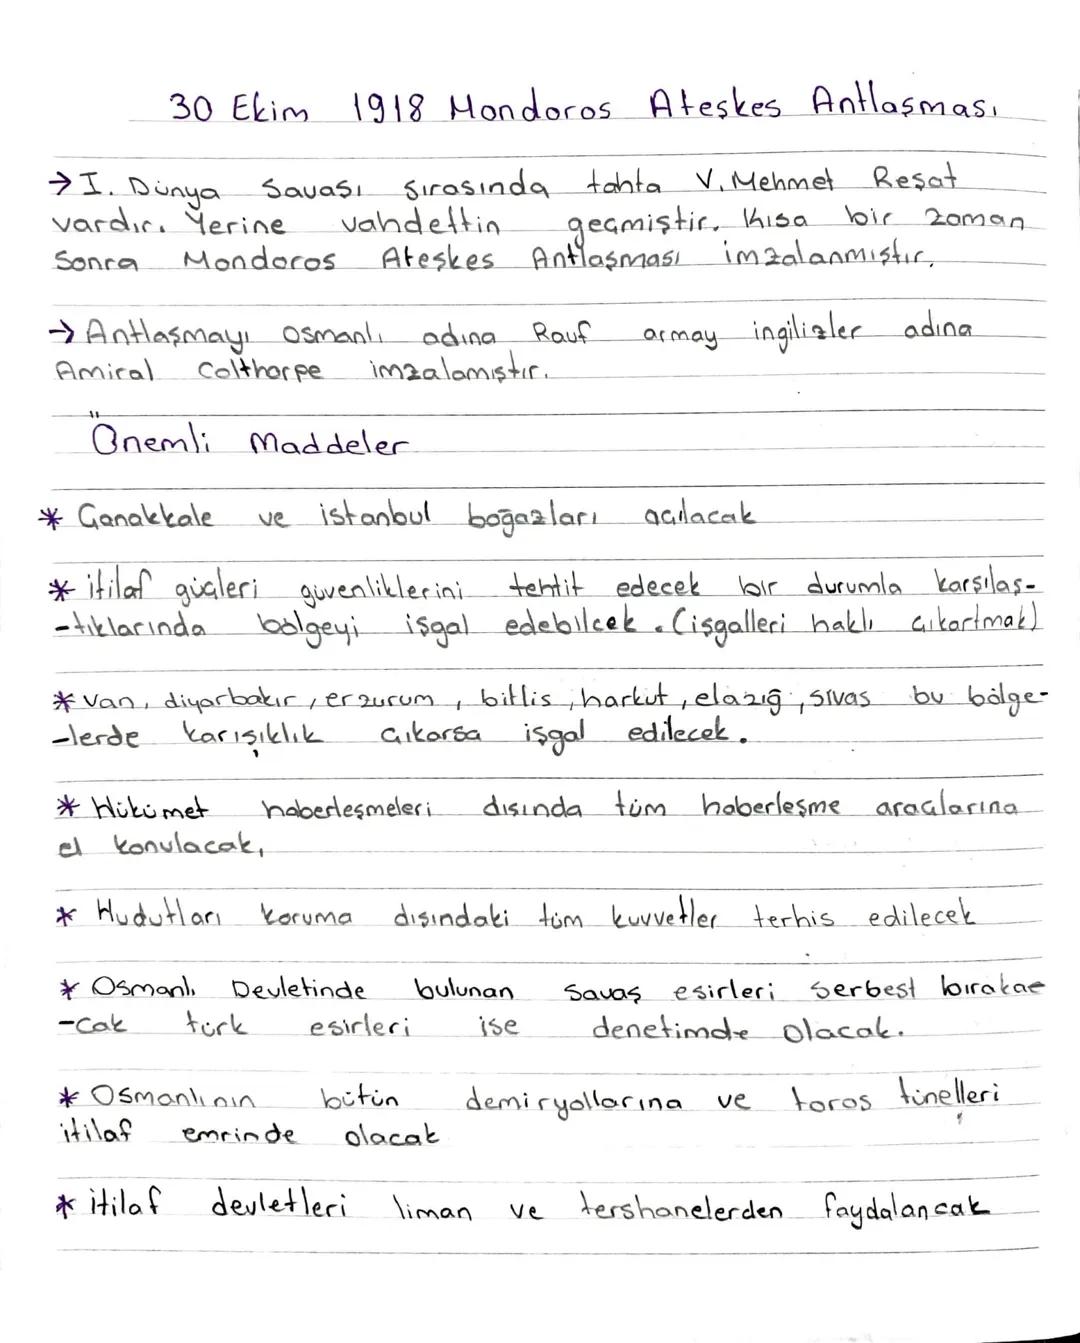 30 Ekim 1918 Mondoros Ateşkes Antlaşması
→ I. Dünya Savası sırasında tahta V. Mehmet Reşat
vardır. Yerine vahdettin geçmiştir. Kısa bir zaman
Sonra Mondoros Ateşkes Antlaşması imzalanmıştır.
→ Antlaşmayı Osmanlı adına Rauf armay ingilizler adına
Amiral Colthorpe imzalamıştır.
Önemli Maddeler
* Çanakkale ve istanbul boğazları açılacak
* itilaf güçleri güvenliklerini tehtit edecek bir durumla karşılaş-
-tıklarında bölgeyi işgal edebilcek. (işgalleri haklı çıkartmak)
* van, diyarbakır, erzurum, bitlis, harkut, elazığ, sivas bu bölge-
-lerde karışıklık çıkarsa işgal edilecek.
* Hükümet haberleşmeleri dışında tüm haberleşme araçlarına
el konulacak,
* Hudutları koruma dışındaki tüm kuvvetler terhis edilecek
* Osmanlı Devletinde bulunan savaş esirleri serbest bırakae
-cak türk esirleri ise denetimde olacak.
* Osmanlının bütün demiryollarına ve toros tünelleri
itilaf emrinde olacak
* itilaf devletleri liman ve tershanelerden faydalancak